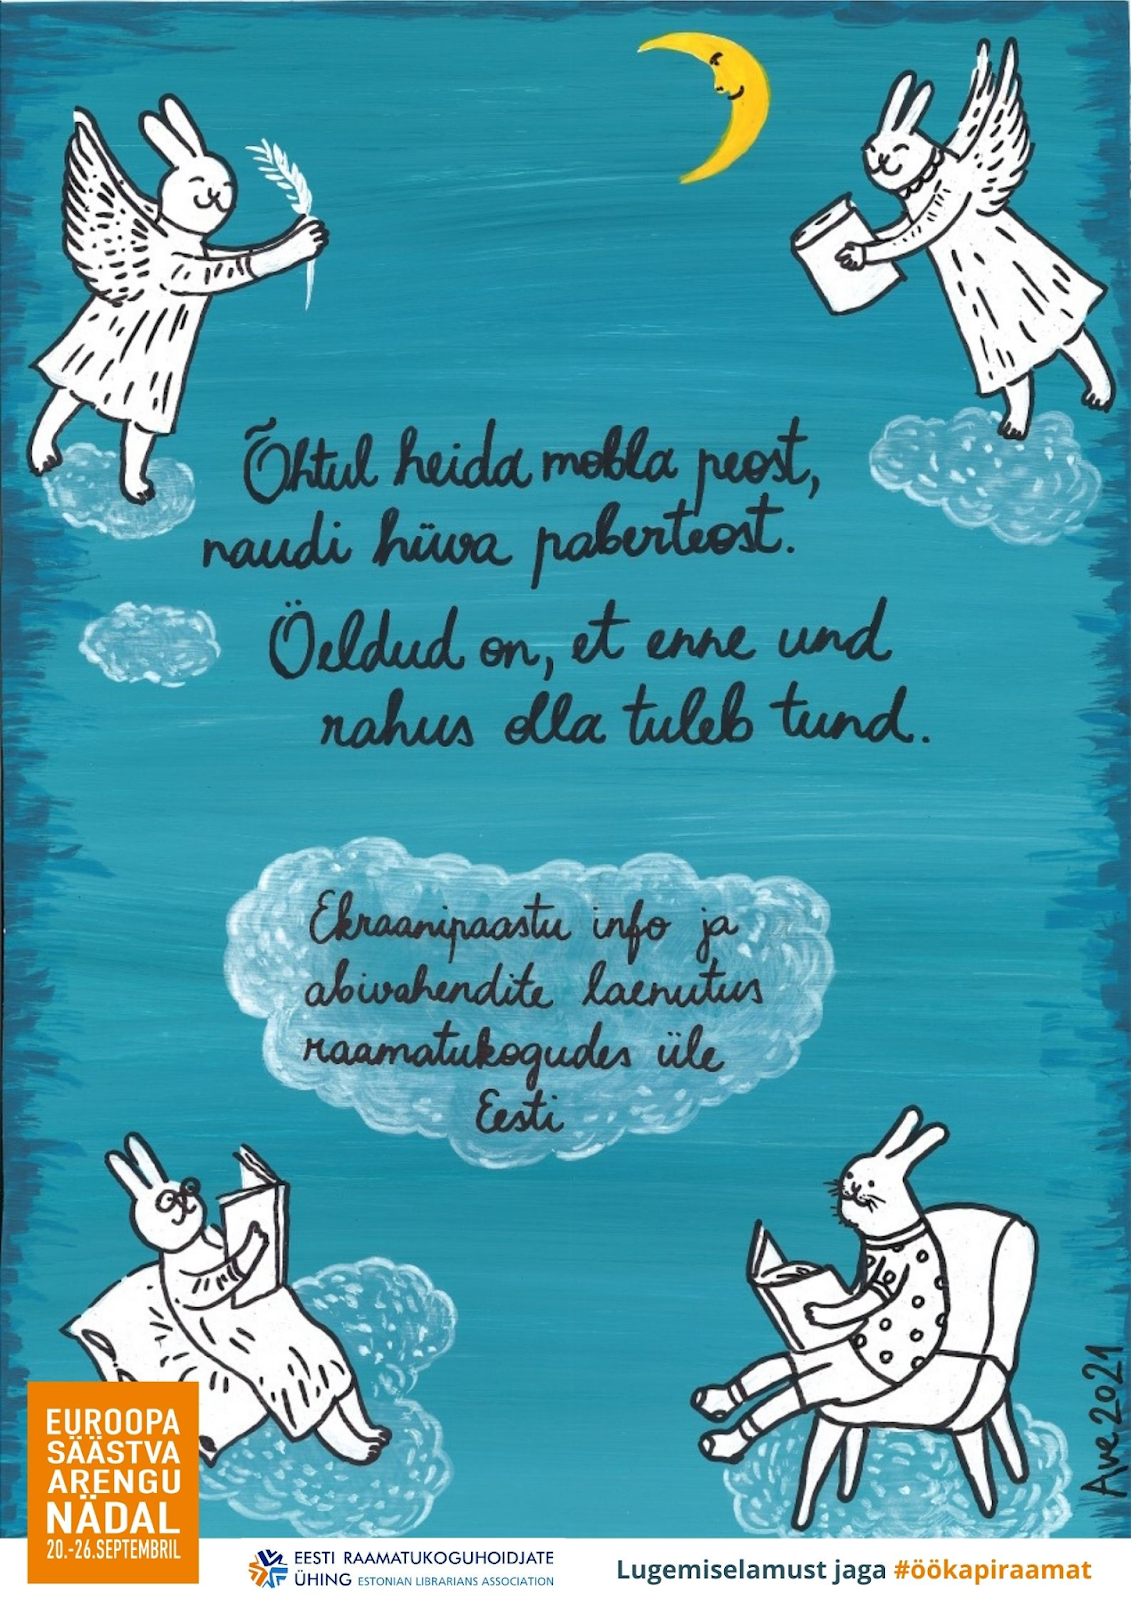 Õhtul heida mobla peost,
naudi hüva paberteost.
Öeldud on, et enne und
rahus olla tuleb tund.
Ekraanipaastu info ja
abivahendite laenutus
raamatukogudes üle
Eesti
Ave 2021
EUROOPA
SÄÄSTVA
ARENGU
NÄDAL
20.-26.SEPTEMBRIL
EESTI RAAMATUKOGUHOIDJATE
ÜHING ESTONIAN LIBRARIANS ASSOCIATION
Lugemiselamust jaga #öökapiraamat